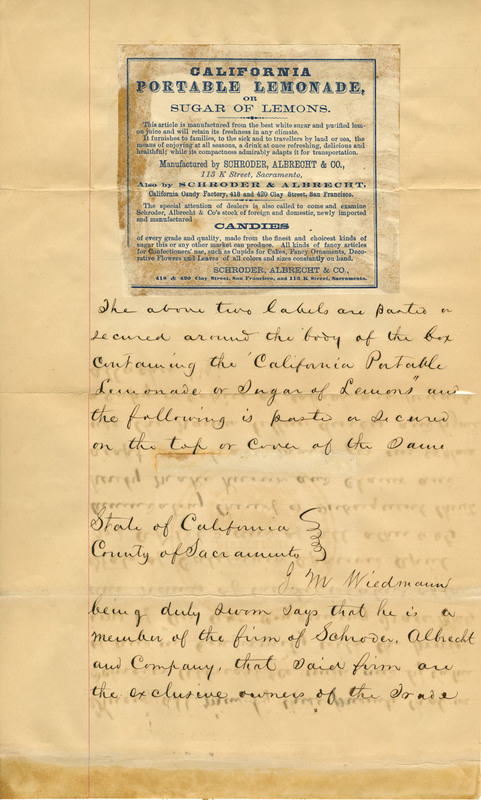 CALIFORNIA
PORTABLE LEMONADE,
OR
SUGAR OF LEMONS.
This article is manufactured from the best white sugar and purified lem-
on juice and will retain its freshness in any climate.
It furnishes to families, to the sick and to travellers by land or sea, the
means of enjoying at all seasons, a drink at once refreshing, delicious and
healthful; while its compactness admirably adapts it for transportation.
Manufactured by SCHRODER, ALBRECHT & CO.,
113 K Street, Sacramento,
Also by SCHRODER & ALBRECHT,
California Candy Factory, 418 and 420 Clay Street, San Francisco.
The special attention of dealers is also called to come and examine
Schroder, Albrecht & Co's stock of foreign and domestic, newly imported
and manufactured
CANDIES
of every grade and quality, made from the finest and choicest kinds of
sugar this or any other market can produce. All kinds of fancy articles
for Confectioners' use, such as Cupids for Cakes, Fancy Ornaments, Deco-
rative Flowers and Leaves of all colors and sizes constantly on hand.
SCHRODER, ALBRECHT & CO.,
418 & 420 Clay Street, San Francisco, and 113 K Street, Sacramento.
The above two labels are pasted or
secured around the body of the box
containing the "California Portable
Lemonade or Sugar of Lemons" and
the following is paste or secured
on the top or cover of the same
State of California
County of Sacramento
J. M Wiedmann
being duly sworn says that he is a
member of the firm of Schroder, Albrecht
and Company, that said firm are
the exclusive owners of the Trade